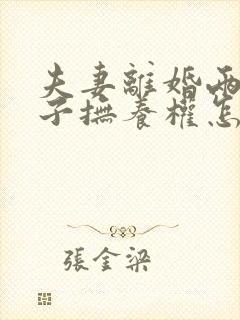 夫妻離婚兩
子撫養權怎
張金梁